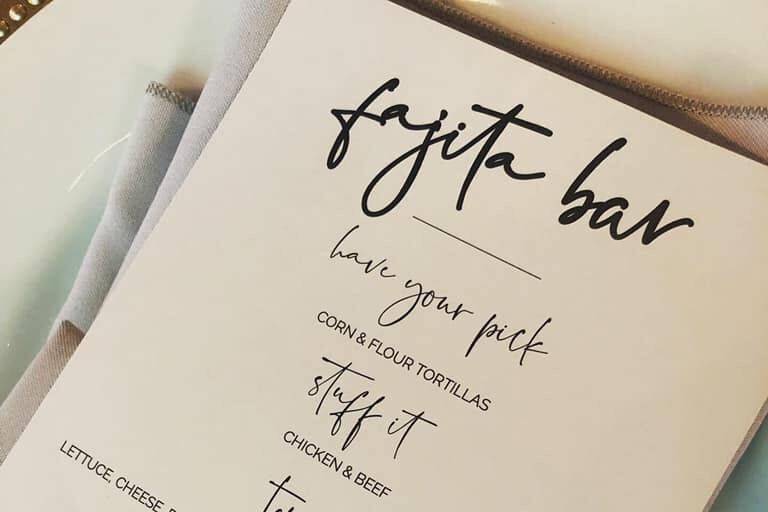 fajita bar
have your pick
CORN & FLOUR TORTILLAS
stuff it
CHICKEN & BEEF
LETTUCE, CHEESE,